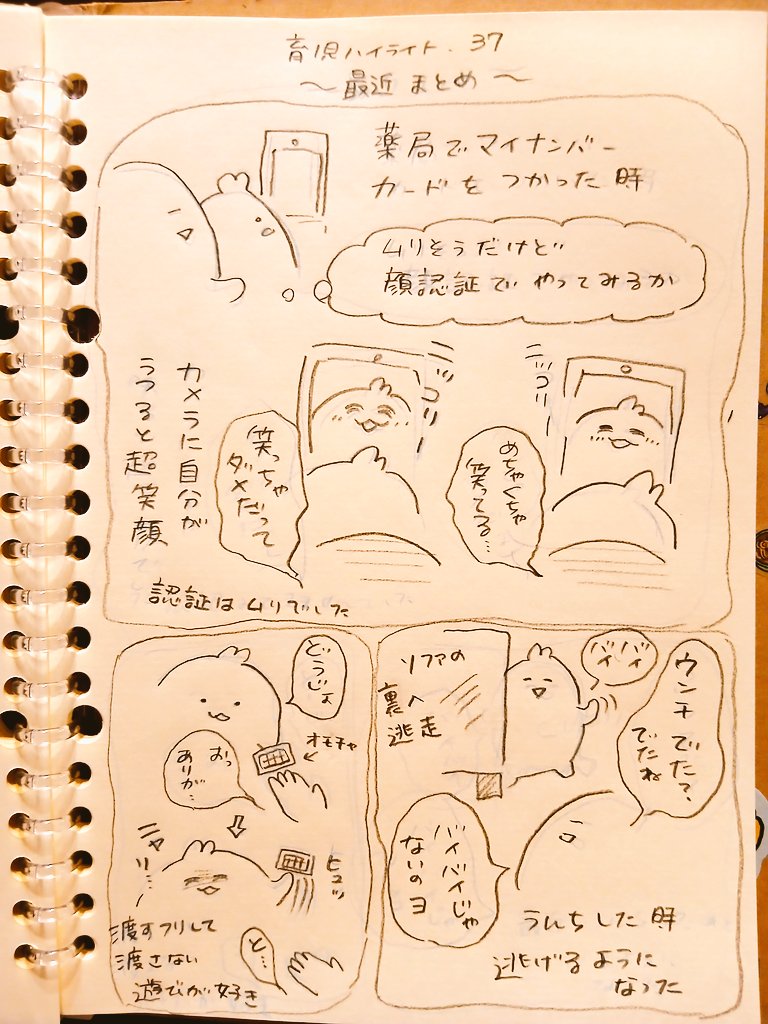 育児ハイライト.37
〜最近まとめ〜
薬局でマイナンバー
カードをつかった時
ムリそうだけど
顔認証でやってみるか
ニッコリー
ニッコリー
めちゃくちゃ
笑ってる…
笑っちゃ
ダメだって
カメラに自分が
うつると超笑顔で
認証はムリでした
どうじょ
オモチャ
おっ
ありが…
ニヤリ…
ヒュッ
と…
渡すフリして
渡さない
遊びが好き
ソファの
裏へ
逃走
バイ
バイ
ウンチでた?
でたね
バイバイじゃ
ないのヨ
うんちした時
逃げるように
なった